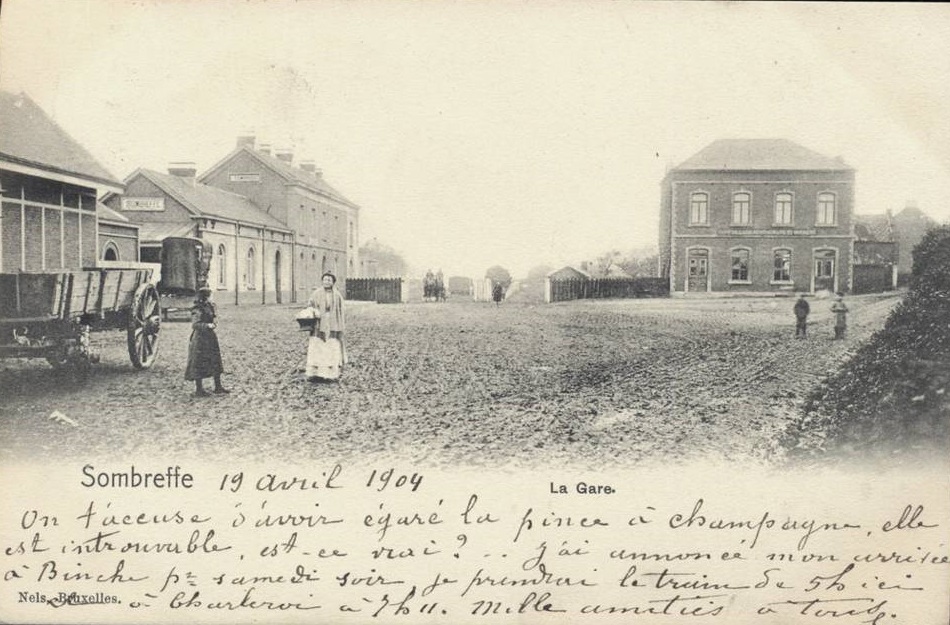 SOMBREFFE
Sombreffe 19 avril 1904
La Gare.
On t'accuse d'avoir égaré la pince à champagne, elle
est introuvable, est-ce vrai? .. J'ai annoncé mon arrivée
à Binche pr samedi soir, je prendrai le train de 5h ici
Nels, Bruxelles.
à Charleroi à 7h11. Mille amitiés à tous.